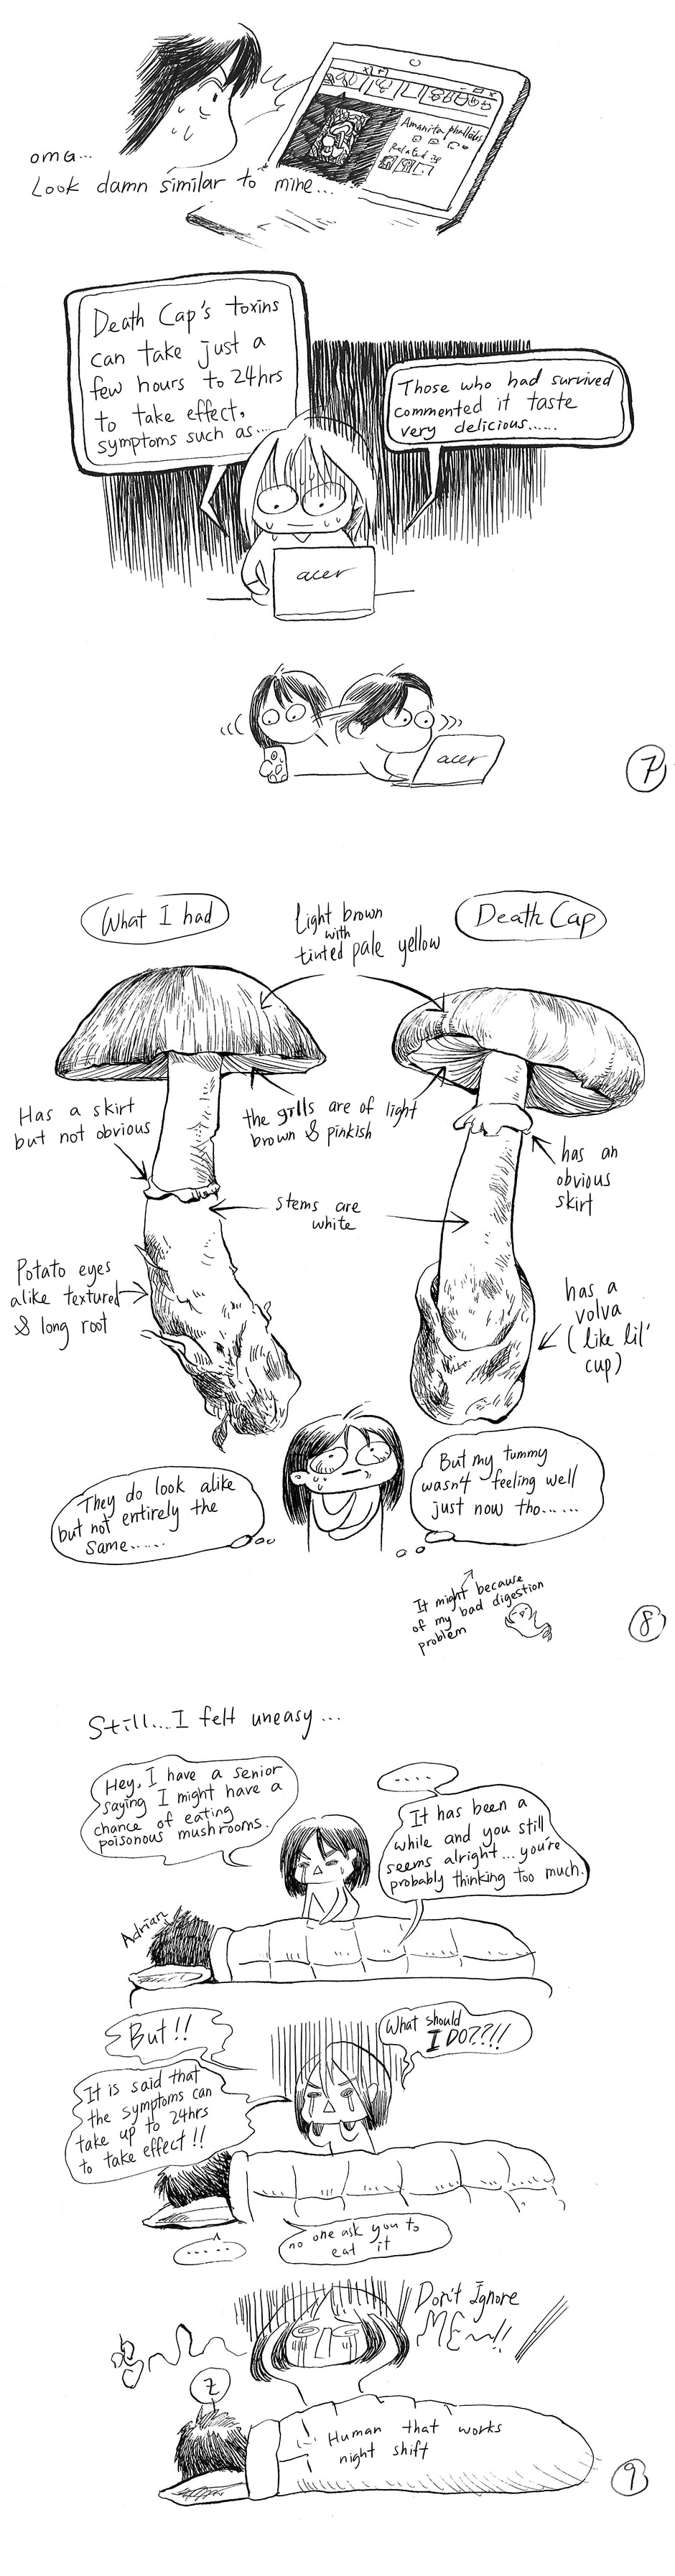 Amanita phalloides
Related
oma...
Look damn similar to mine...
Death Cap's toxins
can take just a
few hours to 24hrs
to take effect,
symptoms such as....
Those who had survived
commented it taste
very delicious......
acer
acer
7
What I had
light brown
with
tinted pale yellow
Death Cap
Has a skirt
but not obvious
the gills are of light
brown & pinkish
has an
obvious
skirt
stems are
white
Potato eyes
alike textured
& long root
has a
volva
(like lil'
cup)
They do look alike
but not entirely the
same......
But my tummy
wasn't feeling well
just now tho......
It might because
of my bad digestion
problem
8
Still... I felt uneasy...
Hey, I have a senior
saying I might have a
chance of eating
poisonous mushrooms.
....
It has been a
while and you still
seems alright... you're
probably thinking too much.
Adrian
But!!
What should
I DO??!!
It is said that
the symptoms can
take up to 24hrs
to take effect!!
.....
no one ask you to
eat it
Don't Ignore
ME~!!
呜
Z
Human that works
night shift
9